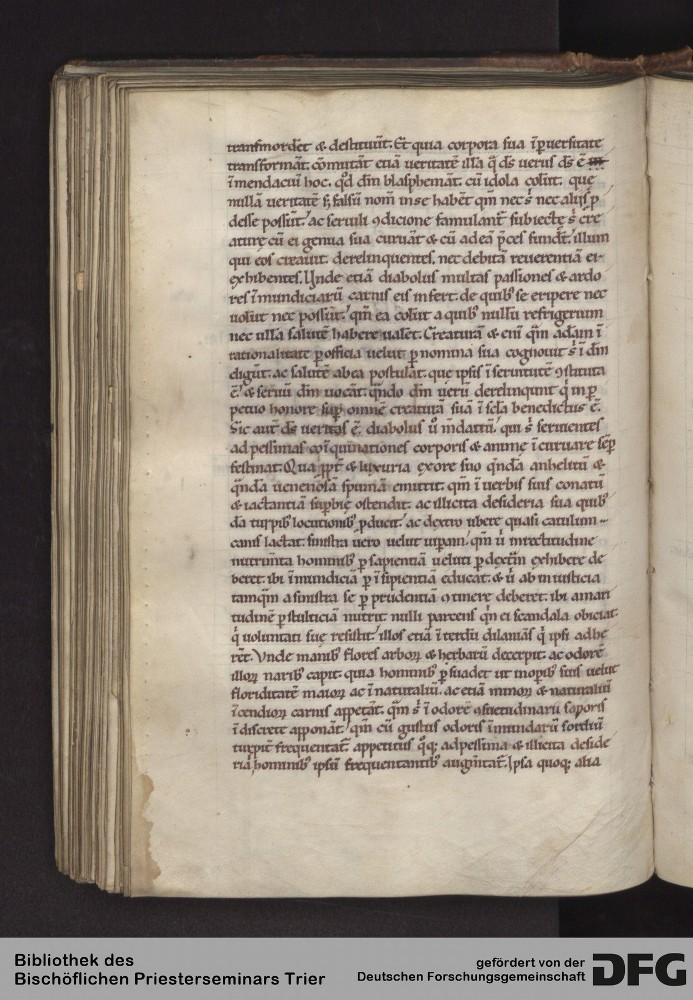 tranſmordēt & deſtituūt. Et quia corpora ſua ı̄puerſitate
tranſformāt. cōmutāt etiā ueritatē illa q̄ ds̄ uerus ds̄ ē
ı̄mendaciū hoc. qd̄ dm̄ blaſphemāt. cū idola colūt. que
nullā ueritatē ſ; falſū nom̄ inſe habēt qm̄ nec s̄ nec aliis p̄
deſſe poſſūt. ac ſeruili ꝯdicione famulant̄ ſubiectę s̄ cre
aturę cū ei genua ſua curuāt & cū adeā p̄ces fundt̄. illum
qui eos creauit. derelinquentes. nec debitā reuerentiā ei
exhibentes. Unde etiā diabolus multas paſſiones & ardo
res ı̄mundiciarū carnis eis infert. de quibꝰ ſe eripere nec
uolūt nec poſſūt. qm̄ ea colūt a quibꝰ nullū refrigerium
nec ulla ſalutē habere ualēt. Creaturā & eni qm̄ adam ı̄
rationalitate ꝑ officia uelut ꝑ nomina ſua cognouit s̄ ı̄ dm̄
digūt. ac ſalutē abea poſtulāt. que ipſis ı̄ ſeruitutē ꝯſtituta
ē. & ſeruū dm̄ uocāt. qn̄do dm̄ uerū derelinqunt q̇ in ꝑ
petuo honore ſuꝑ omnē creaturā ſuā ı̄ ſcl̄a benedictus ē.
Sic aut̄ ds̄ ueritas ē. diabolus ů m̄datiū. qui s̄ ſeruientes
ad peſſimas coı̄quinationes corporis & animę ı̄curuare ſēꝑ
feſtinat. Qua ꝓpt̄ & luxuria exore ſuo qn̄dā anhelitū &
qn̄dā uenenoſā ſpumā emittit. qm̄ ı̄ uerbis ſuis conatū
& iactantiā ſuꝑbię oſtendit. ac illicita deſideria ſua quibꝰ
dā turpibꝰ locutionibꝰ ꝓducit. ac dextro ubere quaſi catulum
canis lactat. ſiniſtra uero uelut uiꝑam. qm̄ ů inrectitudine
nutrim̄ta hominibꝰ ꝑ ſapientiā ueluti ꝑ dextm̄ exhibere de
beret. ibi ı̄mundiciā ꝑ ı̄ſipientiā educat. & ů ab iniuſticia
tamqm̄ a ſiniſtra ſe ꝑ prudentiā ꝯtinere deberet. ibi amari
tudinē ꝑ ſtulticiā nutrit nulli parcens qn̄ ei ſcandala obiciat.
q̇ uoluntati ſuę reſiſtit. illos etiā ı̄terdū dilaniās q̇ ipſi adhe
rēt. Vnde manibꝰ flores arboꝝ & herbarū decerpit. ac odorē
illoꝝ naribꝰ capit. quia hominibꝰ ꝑſuadet ut inopibꝰ ſuis uelut
floriditatē maioꝝ ac ı̄ naturaliū. ac etiā minoꝝ & naturaliū
ı̄cendioꝝ carnis appetāt. qm̄ s̄ ı̄ odorē ꝯſuetudinarii ſaporis
ı̄diſcrete apponāt. qm̄ cū guſtus odoris ı̄mundarū ſordiū
turpit̄ frequentat̄. appetitus qͦq; adpeſſima & illicita deſide
ria hominibꝰ ipſū frequentantibꝰ augm̄tat̄. Ipſa quoq; alia
Bibliothek des
Bischöflichen Priesterseminars Trier
gefördert von der
Deutschen Forschungsgemeinschaft
DFG